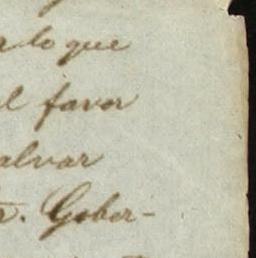 lo que
favor
alvar
Gober-